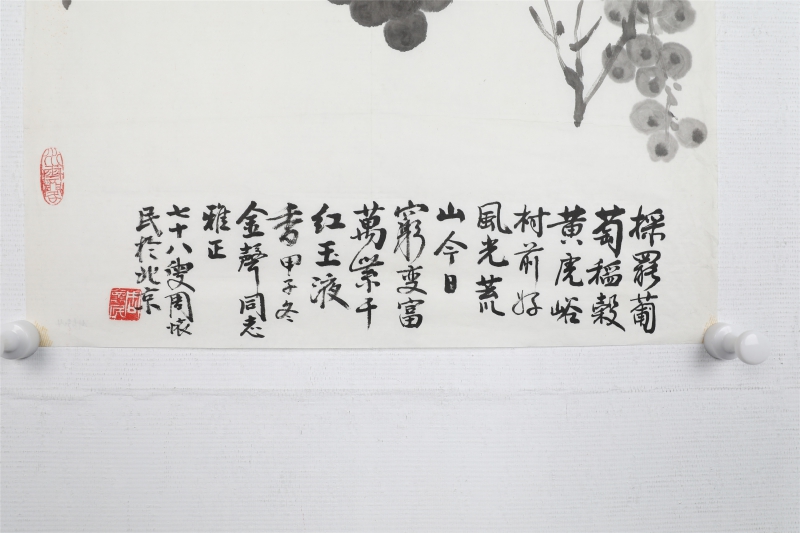 採罷葡
萄稻穀
黄虎峪
村前好
風光荒
山今日
窮变富
萬紫千
红玉液
香甲子冬
金聲同志
雅正
七十八叟周怀
民於北京